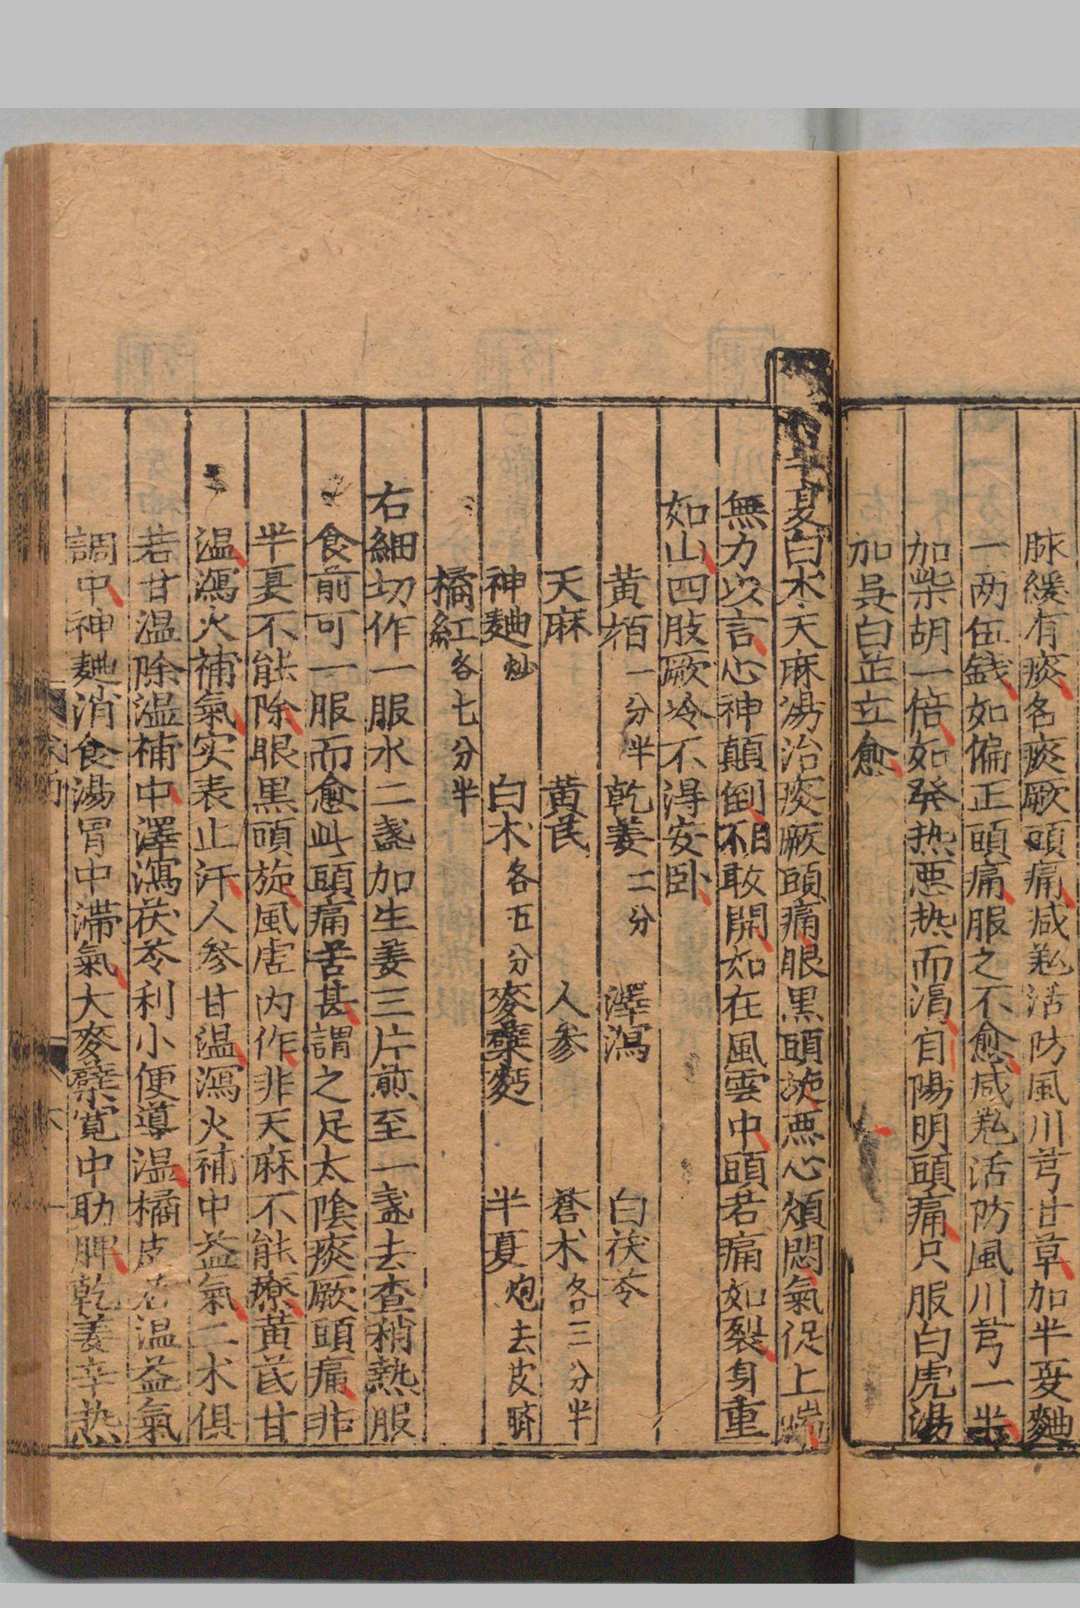 脉緩有痰名痰厥頭痛减羗活防風川芎甘草加半夏麯
一两伍錢如偏正頭痛服之不愈减羗活防風川芎一半
加柴胡一倍如發热悪热而渴自陽明頭痛只服白虎湯
加吳白芷立愈
半夏白术天麻湯治痰厥頭痛眼黒頭旋悪心煩悶氣促上喘
無力以言心神顛倒目不敢開如在風雲中頭若痛如裂身重
如山四肢厥冷不得安卧
黃栢一分半 乾姜二分 澤瀉 白茯苓
天麻 黃芪 人參 蒼术各三分半
神麯炒 白术各五分 麥糵麪 半夏炮去皮臍
橘紅各七分半
右細切作一服水二盞加生姜三片煎至一盞去查稍熱服
食前可一服而愈此頭痛苦甚謂之足太陰痰厥頭痛非
半夏不能除眼黒頭旋風虛内作非天麻不能療黃芪甘
温瀉火補氣实表止汗人參甘温瀉火補中益氣二术俱
若甘温除温補中澤瀉茯苓利小便導温橘皮若温益氣
調中神麯消食湯胃中滯氣大麥糵寬中助脾乾姜辛热